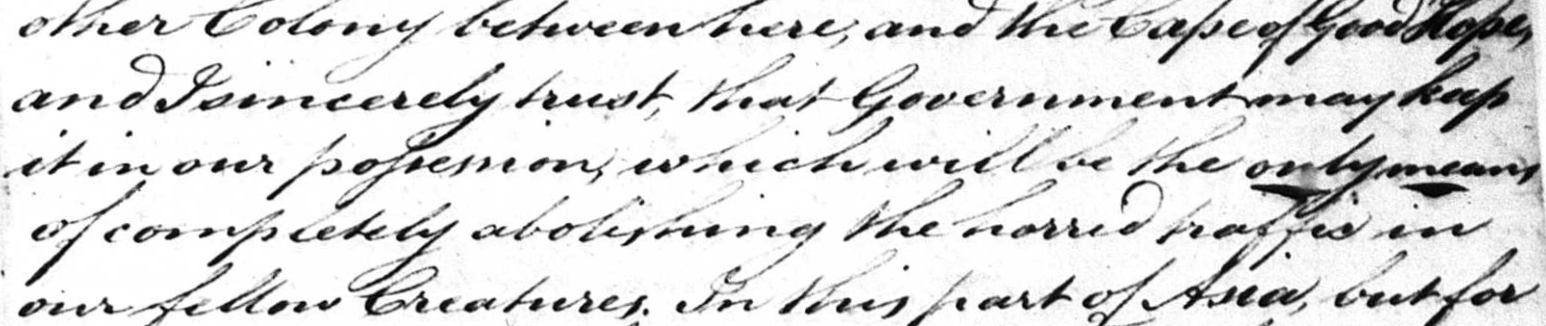 other Colony between here, and the Cape of Good Hope,
and I sincerely trust, that Government may keep
it in our possession, which will be the only means
of completely abolishing the horrid traffic in
our fellow Creatures. In this part of Asia, but for